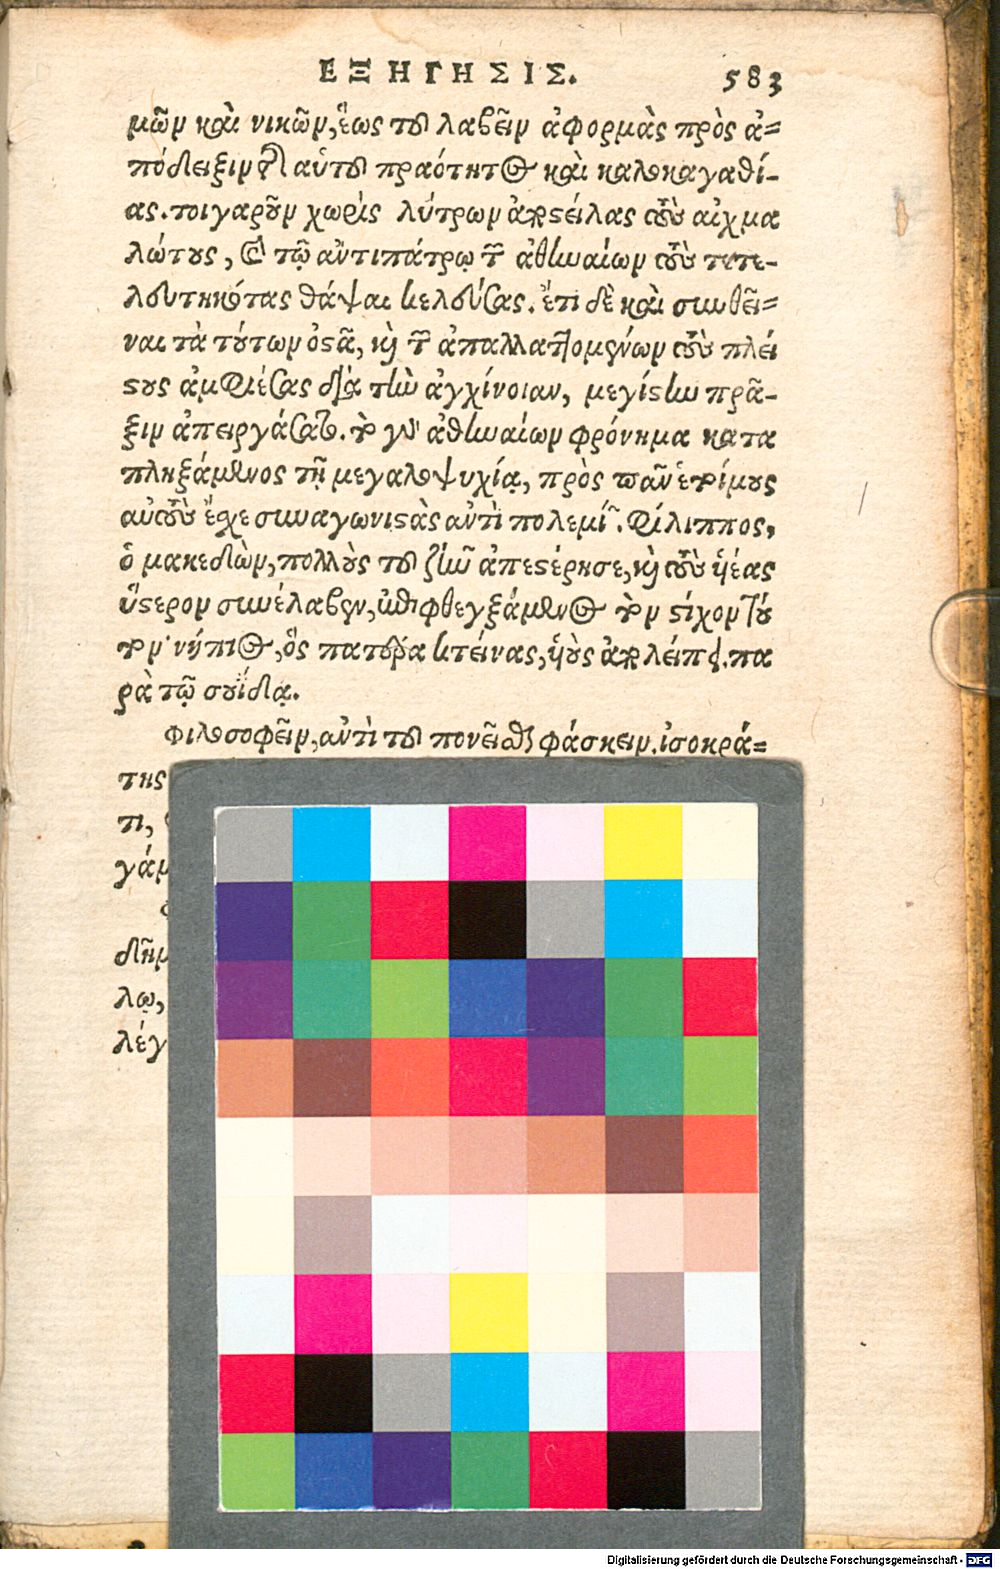 ΕΞΗΓΗΣΙΣ. 583
μῶν καὶ νικῶν, ἕως τοῦ λαβεῖν ἀφορμὰς πρὸς ἀ=
πόδειξιν τ αὑτοῦ πραότητος καὶ καλοκαγαθί-
ας. τοιγαροῦν χωρὶς λύτρων ἀποστείλας τοὺς αἰχμα
λώτους, καὶ τῷ ἀντιπάτρῳ τῶν ἀθηναίων τοὺς τετε-
λευτηκότας θάψαι κελεύσας. ἔτι δὲ καὶ συνθεῖ=
ναι τὰ τούτων ὀστᾶ, καὶ τῶν ἀπαλλαττομένων τοὺς πλεί
στους ἀμφιέσας διὰ τὴν ἀγχίνοιαν, μεγίστην πρᾶ-
ξιν ἀπειργάσατο. τὸ γὰρ ἀθηναίων φρόνημα κατα
πληξάμενος τῇ μεγαλοψυχίᾳ, πρὸς πᾶν ἑτοίμους
αὐτοὺς ἔσχε συναγωνιστὰς ἀντὶ πολεμίων. φίλιππος,
ὁ μακεδὼν, πολλοὺς τοῦ ζῆν ἀπεστέρησε, καὶ τοὺς υἱέας
ὕστερον συνέλαβεν, ἐπιφθεγξάμενος τὸν στίχον τοῦ
τον· νήπιος, ὃς πατέρα κτείνας, υἱοὺς ἀπολείπει. πα
ρὰ τῷ σουίδᾳ.
φιλοσοφεῖν, ἀντὶ τοῦ πονεῖσθαι φάσκειν. ἰσοκρά=
της
τι,
γάμ
δημ
λῳ,
λέγ
Digitalisierung gefördert durch die Deutsche Forschungsgemeinschaft - DFG